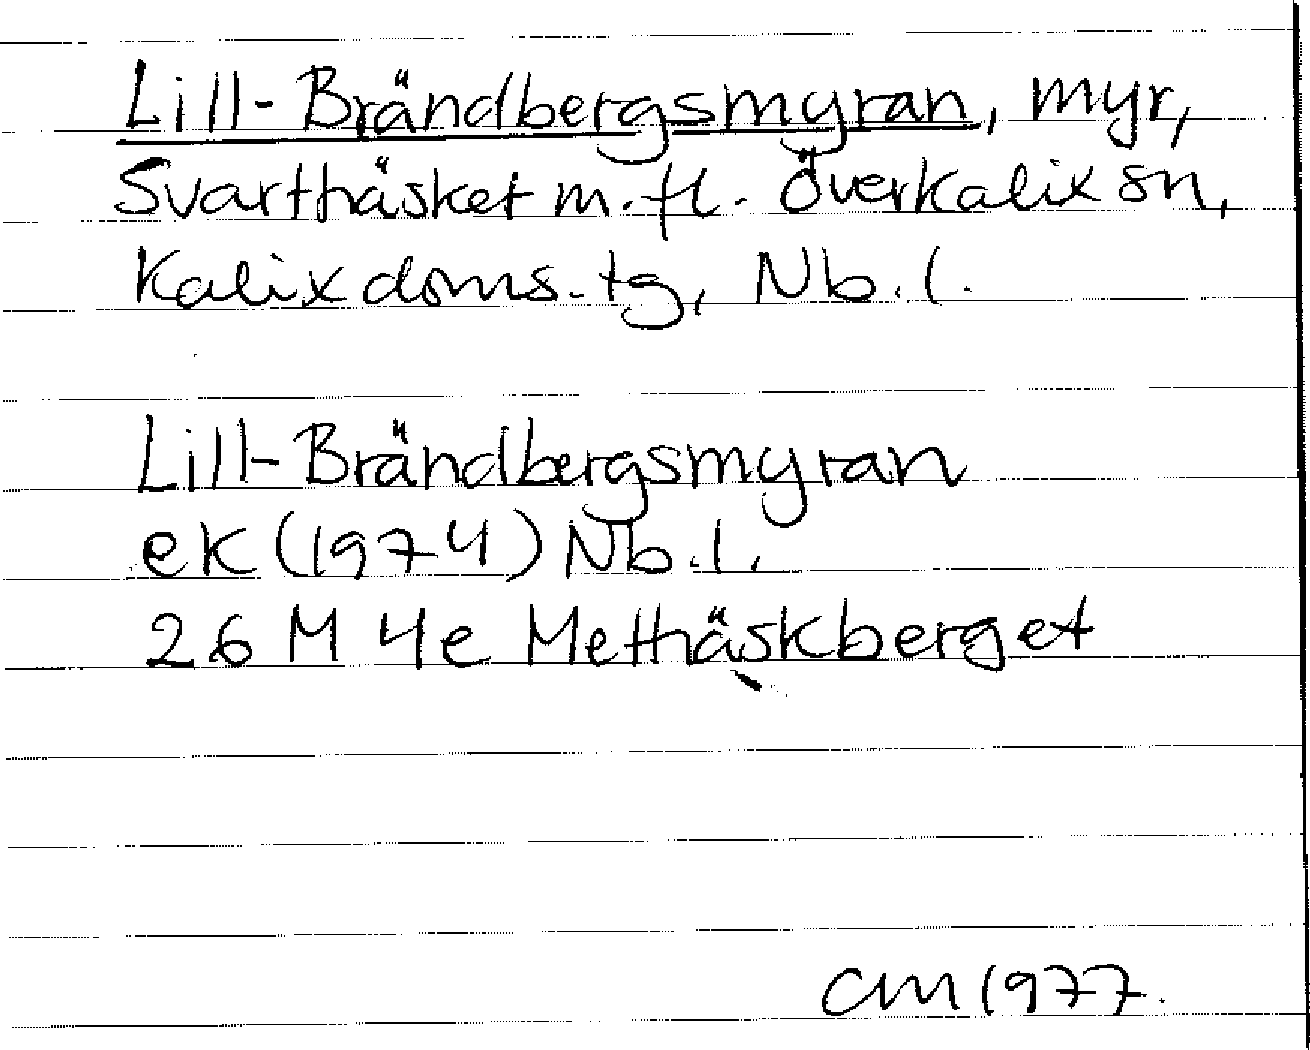 Lill-Brändbergsmyran, myr,
Svartträsket m.fl. Överkalix sn,
Kalix doms.tg, Nb.l.
Lill-Brändbergsmyran
ek (1974) Nb.l.
26 M 4e Metträskberget
CM 1977.